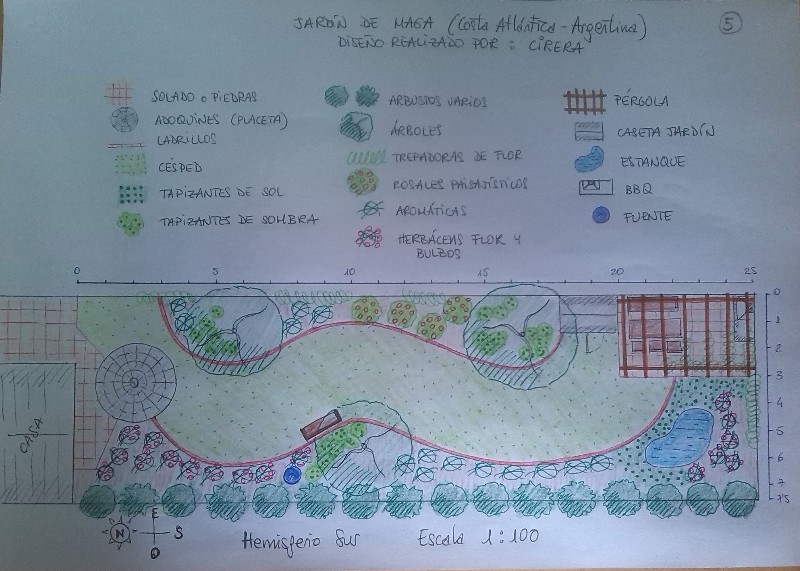 JARDÍN DE MAGA (Costa Atlántica - Argentina)
5
DISEÑO REALIZADO POR : CIRERA
SOLADO o PIEDRAS
ADOQUINES (PLACETA)
LADRILLOS
CÉSPED
TAPIZANTES DE SOL
TAPIZANTES DE SOMBRA
ARBUSTOS VARIOS
ÁRBOLES
TREPADORAS DE FLOR
ROSALES PAISAJÍSTICOS
AROMÁTICAS
HERBÁCEAS FLOR Y
BULBOS
PÉRGOLA
CASETA JARDÍN
ESTANQUE
BBQ
FUENTE
0 5 10 15 20 25
0
1
2
3
4
5
6
7
7'5
CASA
E
N S
O
Hemisferio Sur Escala 1:100